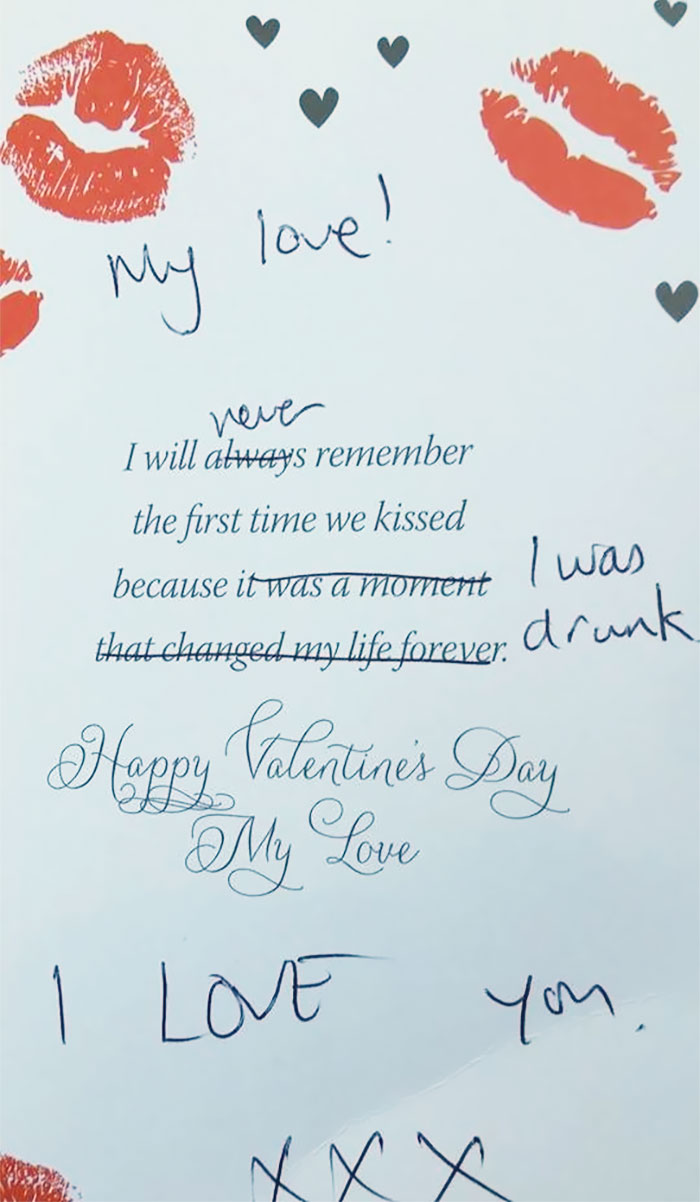 My love!
never
I will always remember
the first time we kissed
because it was a moment
I was
drunk
that changed my life forever.
Happy Valentine's Day
My Love
I LOVE you.
XXX